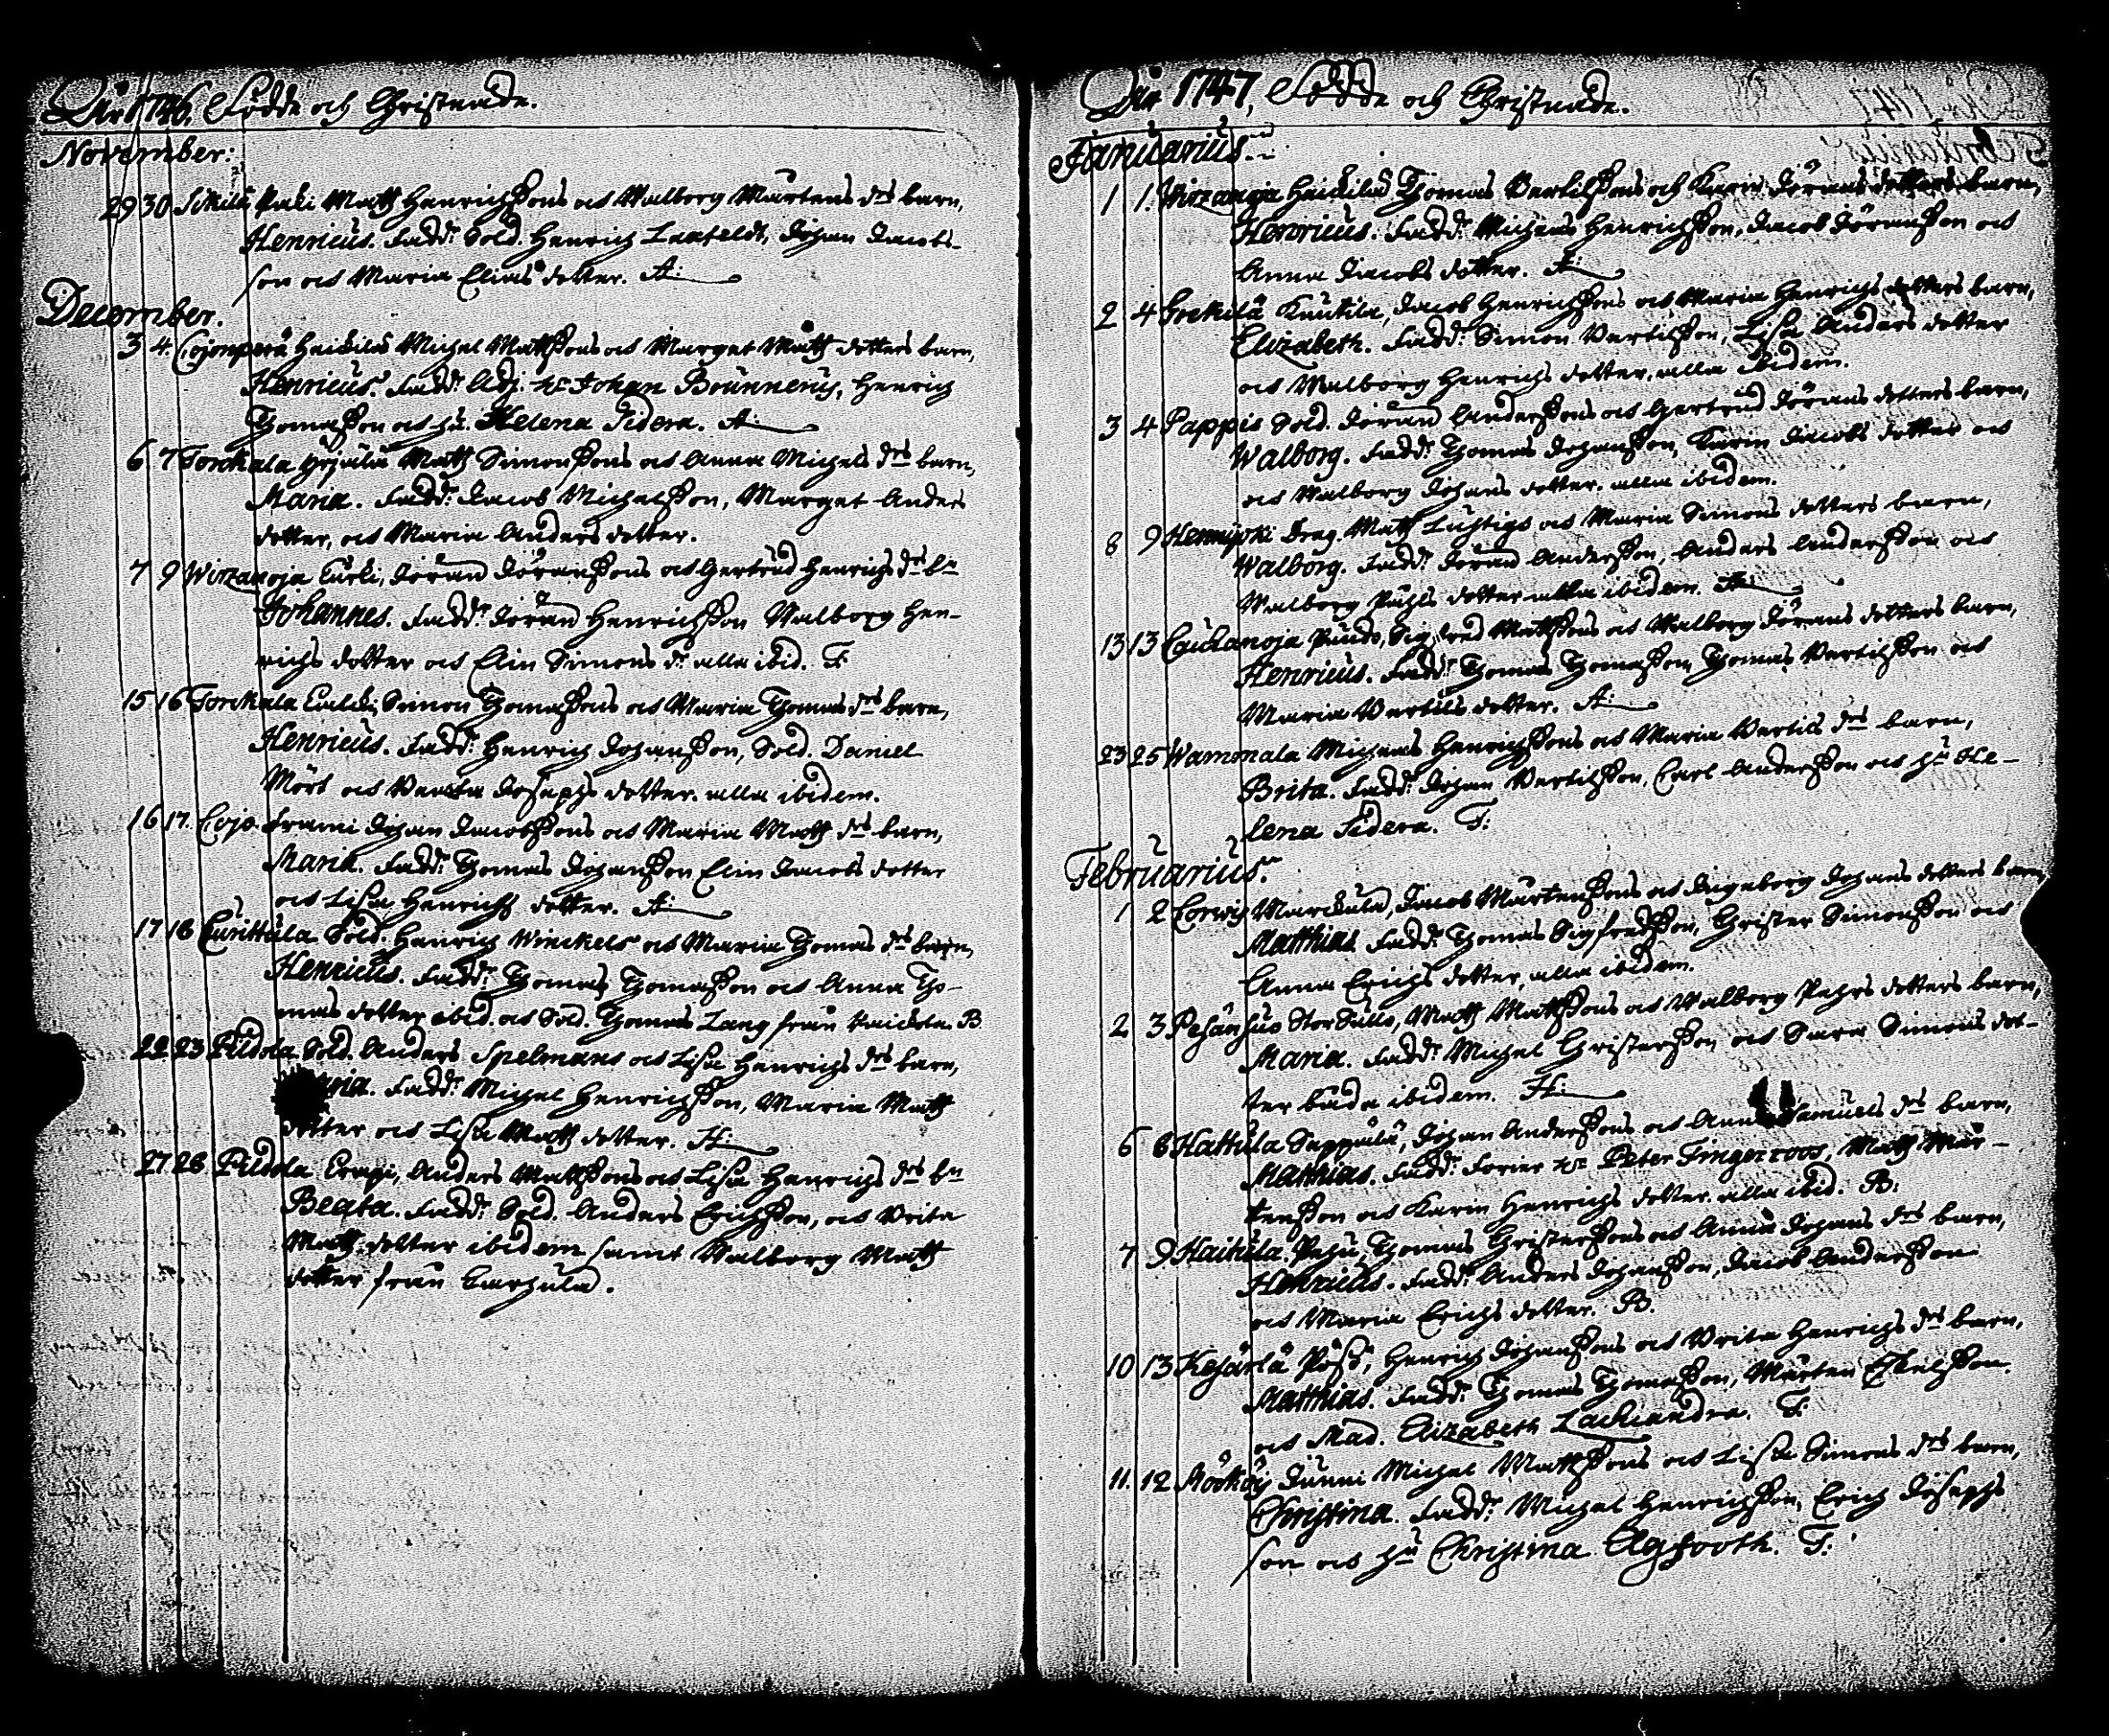 Åhr 1746. Födde och Christnade.
November:
29 30 Sikilä Paki Matts Henrichssons och Walborg Mårtens drs barn,
Henricus. Fadd: Sold. Henrich Johan Jacobs-
son och Maria Elias dotter. A:
December.
3 4. Cojonperä Heickilä Michel Mattssons och Marget Matts dotters barn,
Henricus. Fadd: Adj. Hr Johan Brunnerus, Henrich
Thomasson och hu. Helena Sidera. A:
6 7 Torckala Yrjälä Matts Simonssons och Anna Michels drs barn,
Maria. Fadd: Jacob Michelsson, Marget Anders
dotter, och Maria Anders dotter.
7 9 Wirzanoja Curki, Jöran Jöranssons och Gertrud Henrichs drs bn
Johannes. Fadd: Jöran Henrichsson Walborg Hen-
richs dotter och Elin Simons dr alla ibid. F:
15 16 Torckala Simon Thomassons och Maria Thomas drs barn,
Henricus. Fadd: Henrich Johansson, Sold. Daniel
Mört och Josephs dotter. alla ibidem.
16 17. Cojo Frami Johan Jacobssons och Maria Matts drs barn,
Maria. Fadd: Thomas Johansson Elin Jacobs dotter
och Lisa Henrichs dotter. A:
17 18 Curittula Sold. Henrich Winckels och Maria Thomas drs barn,
Henricus. Fadd: Thomas Thomasson och Anna Tho-
mas dotter ibid. och Sold. Thomas Lang från B.
22 23 Pildola Sold. Anders Spelmans och Lisa Henrichs drs barn,
Fadd: Michel Henrichsson, Maria Matts
dotter och Lisa Matts dotter. H:
27 28. Pildola Erapi, Anders Mattssons och Lisa Henrichs drs bn
Beata. Fadd: Sold. Anders Erichsson, och Brita
Matts dotter ibidem samt Walborg Matts
dotter från Carhula.
Åhr 1747, Födde och Christnade.
Januarius.
1 1. Wirzanoja Heickilä Thomas Bertilssons och Karin Jörans dotters barn,
Henricus. Fadd: Michel Henrichsson, Jacob Jöransson och
Anna Jacobs dotter. A:
2 4 Grekilä Knutila, Jacob Henrichssons och Maria Henrichs dotters barn,
Elizabeth. Fadd: Simon Bertilsson, Lisa Anders dotter
och Walborg Henrichs dotter. alla ibidem.
3 4 Pappis Sold. Jöran Anderssons och Gertrud Jörans dotters barn,
Walborg. Fadd: Thomas Johansson, Karin Jacobs dotter och
och Walborg Johans dotter. alla ibidem.
8 9 Hennijoki Drag. Matts Lustigs och Maria Simons dotters barn,
Walborg. Fadd: Jöran Andersson, Anders Andersson och
Walborg Påhls dotter alla ibidem. A:
13 13 Cauckanoja Sigfred Mattssons och Walborg Jörans dotters barn,
Henricus. Fadd: Thomas Thomasson, Thomas Bertilsson och
Maria Bertils dotter. A:
23 25 Wammala Michel Henrichssons och Maria Bertils drs barn,
Brita. Fadd: Johan Bertilsson, Carl Andersson och hu He-
lena Sidera. F:
Februarius.
1 2 Corwis Marckula, Jacob Mårtenssons och Ingeborg Johans dotters barn,
Matthias. Fadd: Thomas Sigfredsson, Christer Simonsson och
Anna Erichs dotter, alla ibidem.
2 3 Pesänsuo Matts Mattssons och Walborg Pehrs dotters barn,
Maria. Fadd: Michel Christersson och Sara Simons dot-
ter båda ibidem. H:
6 8 Hattula Seppälä, Johan Anderssons och Anna Samuels drs barn,
Matthias. Fadd: Forier Hr Peter Fingerroos, Matts Mår-
tensson och Karin Henrichs dotter. alla ibid. B.
7 9 Haitula Pehu, Thomas Christerssons och Anna Johans drs barn,
Henricus. Fadd: Anders Johansson, Jacob Andersson
och Maria Erichs dotter. B.
10 13 Kesärlä Pösö, Henrich Johanssons och Brita Henrichs drs barn,
Matthias. Fadd: Thomas Thomasson, Mårten Eskelsson
och Mad. Elizabeth F:
11. 12 Nöököy Junni Michel Mattssons och Lisa Simons drs barn,
Christina. Fadd: Michel Henrichsson, Erich Josephs
son och hu Christina Agrooth. F: